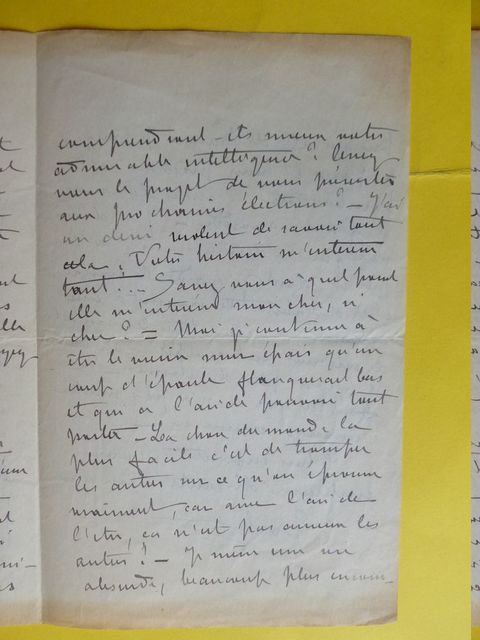 comprendront-ils mieux votre
admirable intelligence? Avez
vous le projet de vous présenter
aux prochaines élections? — J'ai
un désir violent de savoir tout
cela. Votre histoire m'intéresse
tant!... — Savez vous à quel point
elle m'intéresse mon cher, si
cher? = Moi je continue à
être le murin mur épais qu'un
coup d'épaule flanquerait bas
et qui a l'air de pouvoir tout
porter — La chose du monde la
plus facile c'est de tromper
les autres sur ce qu'on éprouve
vraiment, car avec l'air de
l'être, ça n'est pas connu les
autres! — Je mène une vie
absurde, beaucoup plus incom-